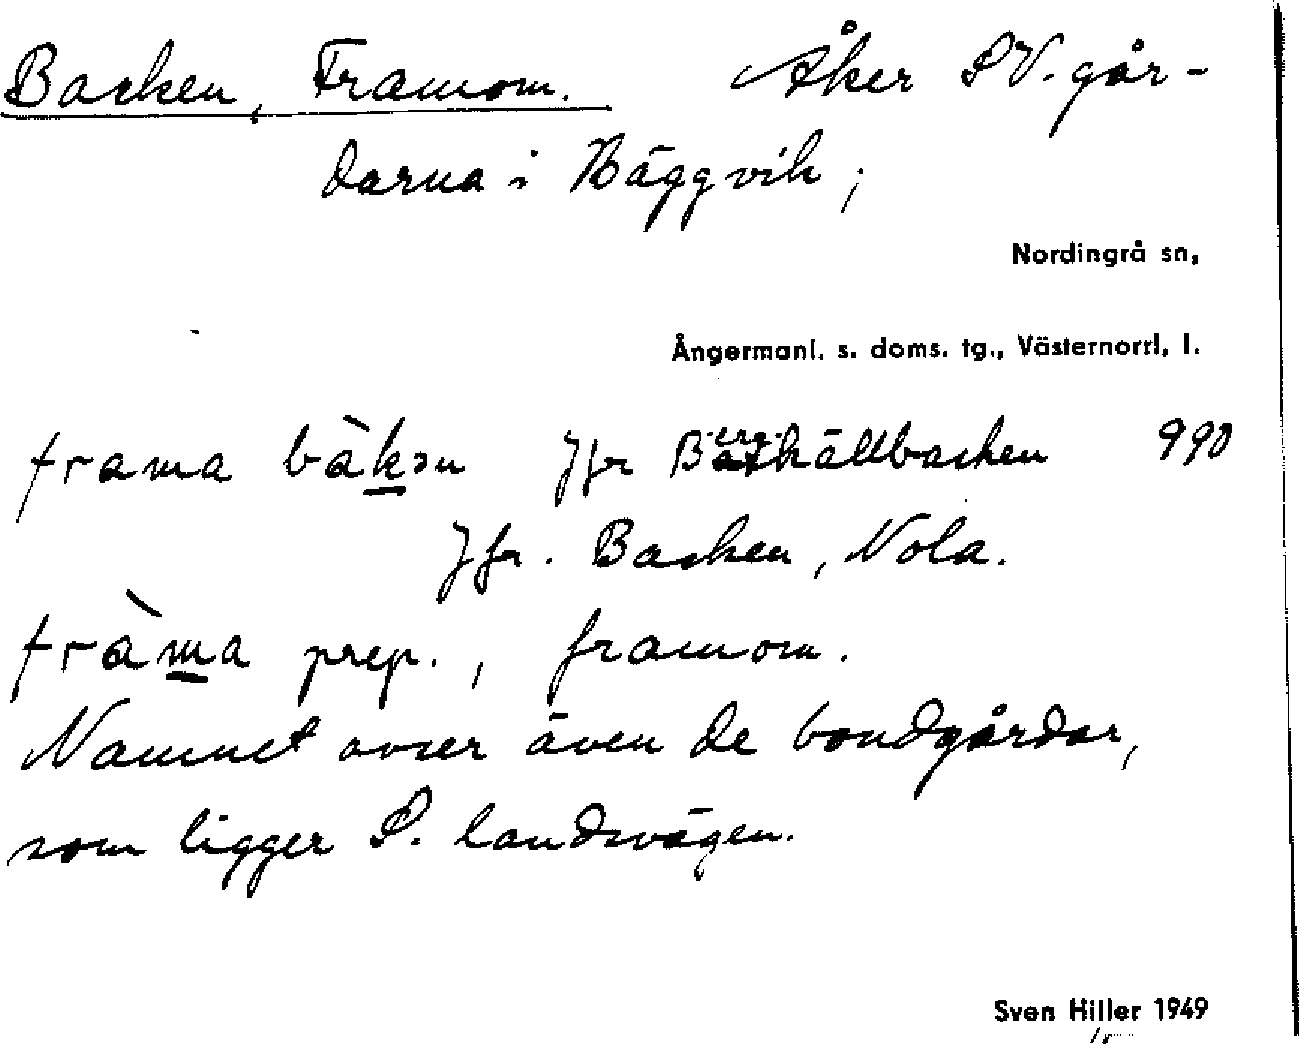 Backen, Framom. Åker SV. går-
darna i Häggvik;
Nordingrå sn,
Ångermanl. s. doms. tg., Västernorrl. l.
frama bàkən Jfr Bergkällbacken 990
Jfr. Backen, Nola.
fràma prep., framom.
Namnet avser även de bondgårdar,
som ligger S. landsvägen.
Sven Hiller 1949